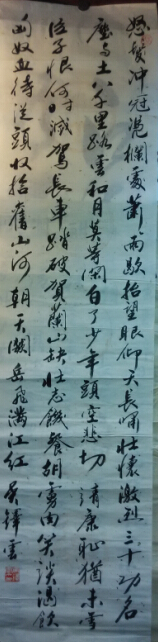 怒髮冲冠憑欄處蕭々雨歇抬望眼仰天長嘯壯懷激烈三十功名
塵與土八千里路雲和月莫等閑白了少年頭空悲切靖康恥猶未雪
臣子恨何时滅駕長車踏破賀蘭山缺壯志饑餐胡虜肉笑談渴飲
匈奴血待從頭收拾舊山河朝天闕岳飛滿江红